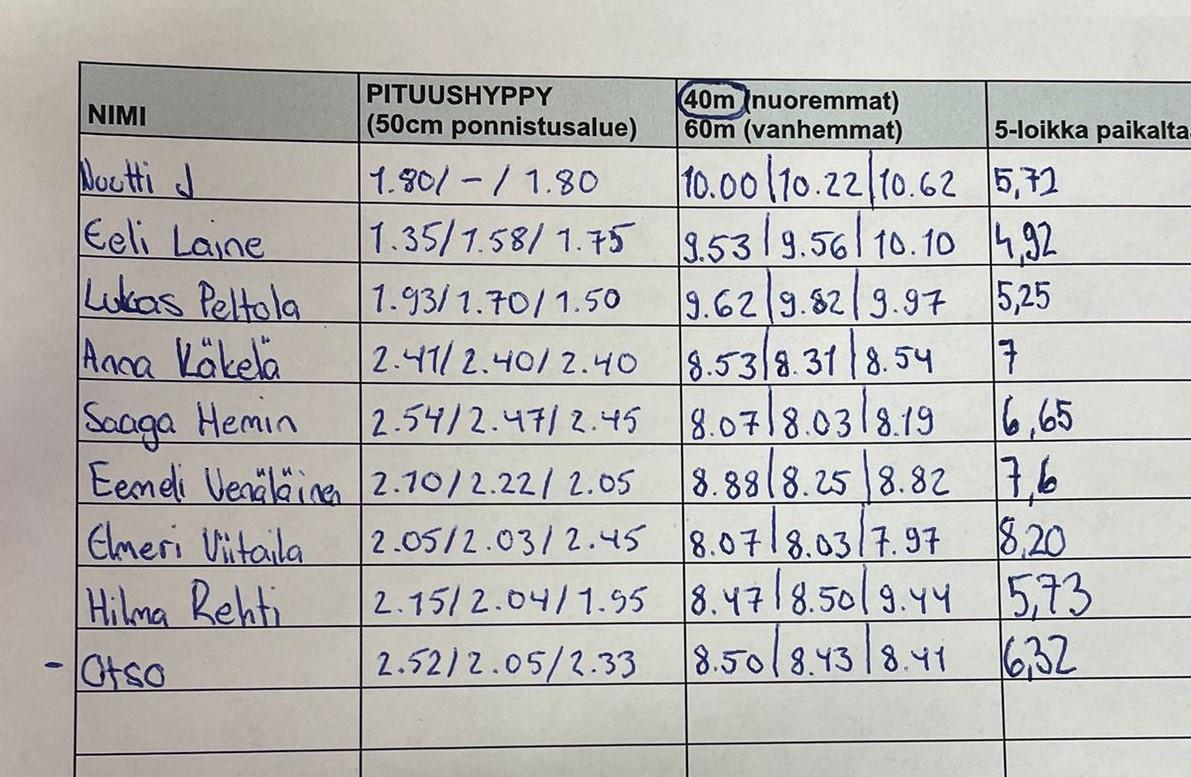 NIMI PITUUSHYPPY (50cm ponnistusalue) 40m (nuoremmat) 60m (vanhemmat) 5-loikka paikalta
Nuutti J 1.80/ - / 1.80 10.00|10.22|10.62 5,72
Eeli Laine 1.35/1.58/1.75 9.53|9.56|10.10 4,92
Lukas Peltola 1.93/1.70/1.50 9.62|9.82|9.97 5,25
Anna Käkelä 2.41/2.40/2.40 8.53|8.31|8.54 7
Saaga Hemin 2.54/2.47/2.45 8.07|8.03|8.19 6,65
Eemeli Venäläinen 2.10/2.22/2.05 8.88|8.25|8.82 7,6
Elmeri Viitaila 2.05/2.03/2.45 8.07|8.03|7.97 8,20
Hilma Rehti 2.15/2.04/1.95 8.47|8.50|9.44 5,73
- Otso 2.52/2.05/2.33 8.50|8.43|8.41 6,32